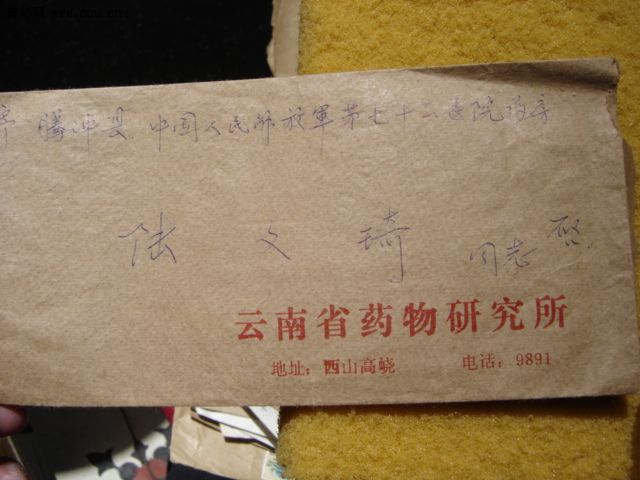 腾冲县 中国人民解放军第七十二医院药房
陆文琦 同志 启
云南省药物研究所
地址：西山高峣 电话：9891